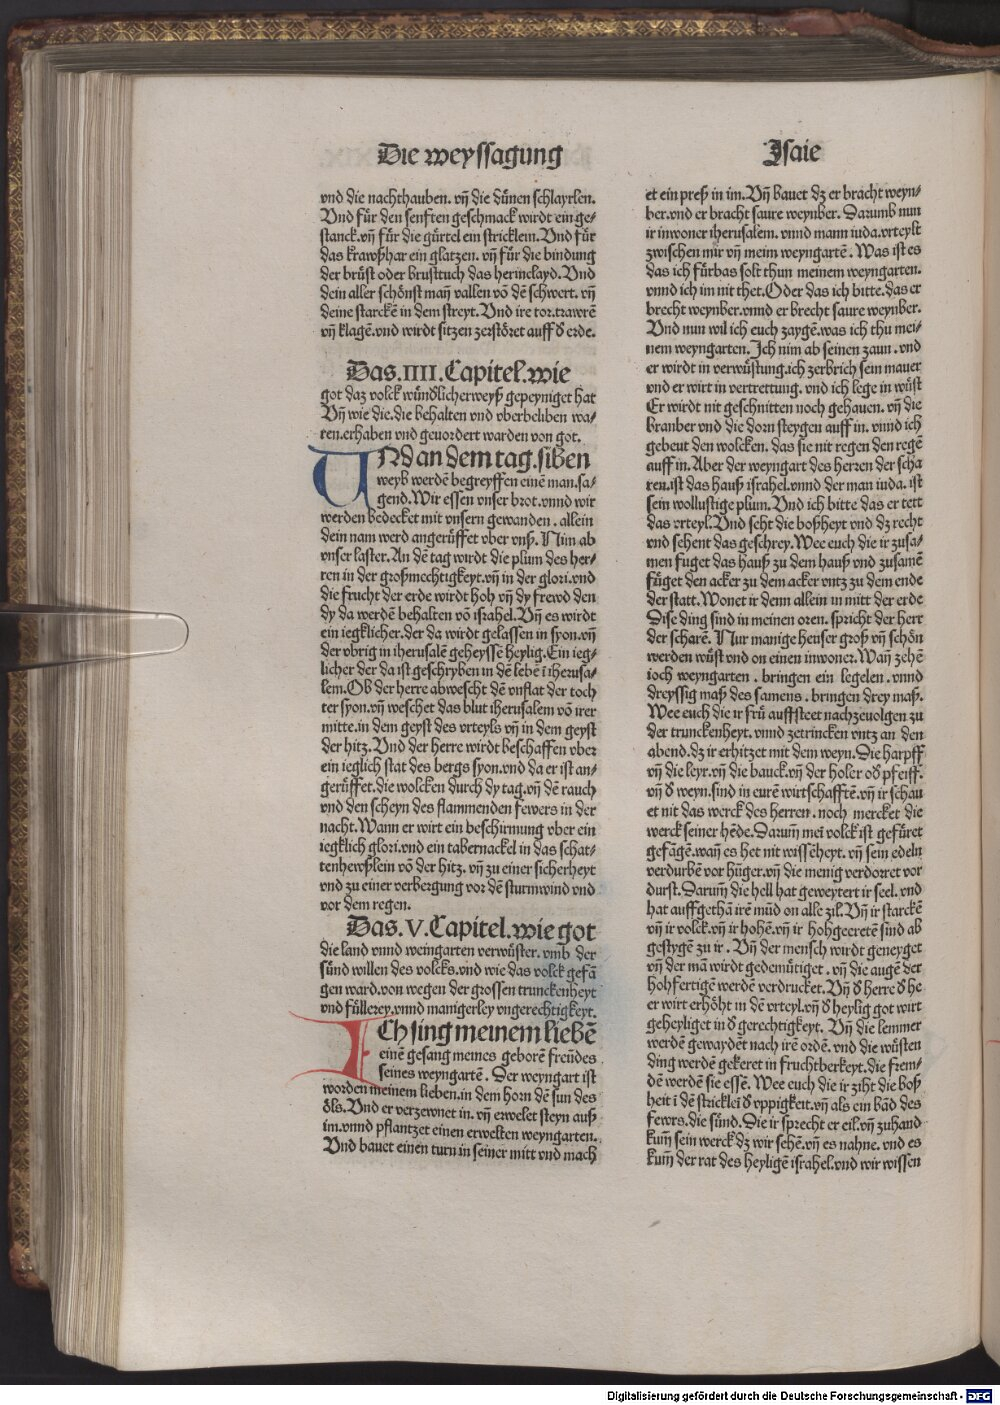 Die weyssagung
Isaie
vnd die nachthauben. vñ die dünen schlayrlen.
Vnd für den senften geschmack wirdt ein ge-
stanck. vñ für die gürtel ein stricklein. Vnd für
das krawßhar ein glatzen. vñ für die bindung
der brüst oder brusttuch das herinclayd. Vnd
dein aller schönst mañ vallen võ dẽ schwert. vñ
deine starckẽ in dem streyt. Vnd ire tor. trawrẽ
vñ klagẽ. vnd wirdt sitzen zerstöret auff d̕ erde.
Das. IIII. Capitel. wie
got daz volck wũdlicherweyß gepeyniget hat
Vñ wie die. die behalten vnd vberbeliben wa-
ren. erhaben vnd geuordert warden von got.
VNd an dem tag. siben
weyb werdẽ begreyffen einẽ man. sa-
gend. Wir essen vnser brot. vnnd wir
werden bedecket mit vnsern gewanden. allein
dein nam werd angerüffet vber vnß. Nim ab
vnser laster. An dẽ tag wirdt die plum des her-
ren in der großmechtigkeyt. vñ in der glori. vnd
die frucht der erde wirdt hoh vñ dy frewd den
dy da werdẽ behalten võ israhel. Vñ es wirdt
ein iegklicher. der da wirdt gelassen in syon. vñ
der vbrig in iherusalẽ geheyssẽ heylig. Ein ieg-
licher der da ist geschryben in dẽ lebẽ ĩ iherusa-
lem. Ob der herre abwescht dẽ vnflat der toch
ter syon. vñ weschet das blut iherusalem võ irer
mitte. in dem geyst des vrteyls vñ in dem geyst
der hitz. Vnd der herre wirdt beschaffen vber
ein ieglich stat des bergs syon. vnd da er ist an-
gerüffet. die wolcken durch dy tag. vñ dẽ rauch
vnd den scheyn des flammenden fewers in der
nacht. Wann er wirt ein beschirmung vber ein
iegklich glori. vnd ein tabernackel in das schat-
tenhewßlein võ der hitz. vñ zu einer sicherheyt
vnd zu einer verbergung vor dẽ sturmwind vnd
vor dem regen.
Das. V. Capitel. wie got
die land vnnd weingarten verwüster. vmb der
sünd willen des volcks. vnd wie das volck gefã
gen ward. von wegen der grossen trunckenheyt
vnd füllerey. vnnd manigerley vngerechtigkeyt.
ICh sing meinem liebẽ
einẽ gesang meines geborẽ freũdes
seines weyngartẽ. Der weyngart ist
worden meinem lieben. in dem horn dẽ sun des
öls. Vnd er verzewnet in. vñ erwelet steyn auß
im. vnnd pflantzet einen erwelten weyngarten.
Vnd bauet einen turn in seiner mitt vnd mach
et ein preß in im. Vñ bauet dz er bracht weyn-
ber. vnd er bracht saure weynber. Darumb nun
ir inwoner iherusalem. vnnd mann iuda. vrteylt
zwischen mir vñ meim weyngartẽ. Was ist es
das ich fürbas solt thun meinem weyngarten.
vnnd ich im nit thet. Oder das ich bitte. das er
brecht weynber. vnnd er brecht saure weynber.
Vnd nun wil ich euch zaygẽ. was ich thu mei-
nem weyngarten. Ich nim ab seinen zaun. vnd
er wirdt in verwüstung. ich zerbrich sein mauer
vnd er wirt in vertrettung. vnd ich lege in wüst
Er wirdt nit geschnitten noch gehauen. vñ die
branber vnd die dorn steygen auff in. vnnd ich
gebeut den wolcken. das sie nit regen den regẽ
auff in. Aber der weyngart des herren der scha
ren. ist das hauß israhel. vnnd der man iuda. ist
sein wollustige plum. Vnd ich bitte das er tett
das vrteyl. Vnd seht die boßheyt vnd dz recht
vnd sehent das geschrey. Wee euch die ir zusa-
men fuget das hauß zu dem hauß vnd zusamẽ
füget den acker zu dem acker vntz zu dem ende
der statt. Wonet ir denn allein in mitt der erde
Dise ding sind in meinen oren. spricht der herr
der scharẽ. Nur manige heuser groß vñ schön
werden wüst vnd on einen inwoner. Wañ zehẽ
ioch weyngarten. bringen ein legelen. vnnd
dreyssig maß des samens. bringen drey maß.
Wee euch die ir frü auffsteet nachzeuolgen zu
der trunckenheyt. vnnd zetrincken vntz an den
abend. dz ir erhitzet mit dem weyn. Die harpff
vñ die leyr. vñ die bauck. vñ der holer od̕ pfeiff.
vñ d̕ weyn. sind in eurẽ wirtschafftẽ. vñ ir schau
et nit das werck des herren. noch mercket die
werck seiner hẽde. Darum̃ mei volck ist gefüret
gefãgẽ. wañ es het nit wissẽheyt. vñ sein edeln
verdurbẽ vor hũger. vñ die menig verdorret vor
durst. Darum̃ die hell hat geweytert ir seel. vnd
hat auffgethã irẽ mũd on alle zil. Vñ ir starckẽ
vñ ir volck. vñ ir hohẽ. vñ ir hohgeeretẽ sind ab
gestygẽ zu ir. Vñ der mensch wirdt geneyget
vñ der mã wirdt gedemütiget. vñ die augẽ der
hohfertigẽ werdẽ verdrucket. Vñ d̕ herre d̕ he
er wirt erhöht in dẽ vrteyl. vñ d̕ heylig got wirt
geheyliget in d̕ gerechtigkeyt. Vñ die lemmer
werdẽ gewaydẽt nach irẽ ordẽ. vnd die wüsten
ding werdẽ gekeret in fruchtberkeyt. die frem-
dẽ werdẽ sie essẽ. Wee euch die ir ziht die boß
heit ĩ dẽ stricklei d̕ vppigkeit. vñ als ein bãd des
fewrs. die sünd. Die ir sprecht er eil. vñ zuhand
kum̃ sein werck dz wir sehẽ. vñ es nahne. vnd es
kum̃ der rat des heyligẽ israhel. vnd wir wissen
Digitalisierung gefördert durch die Deutsche Forschungsgemeinschaft - DFG